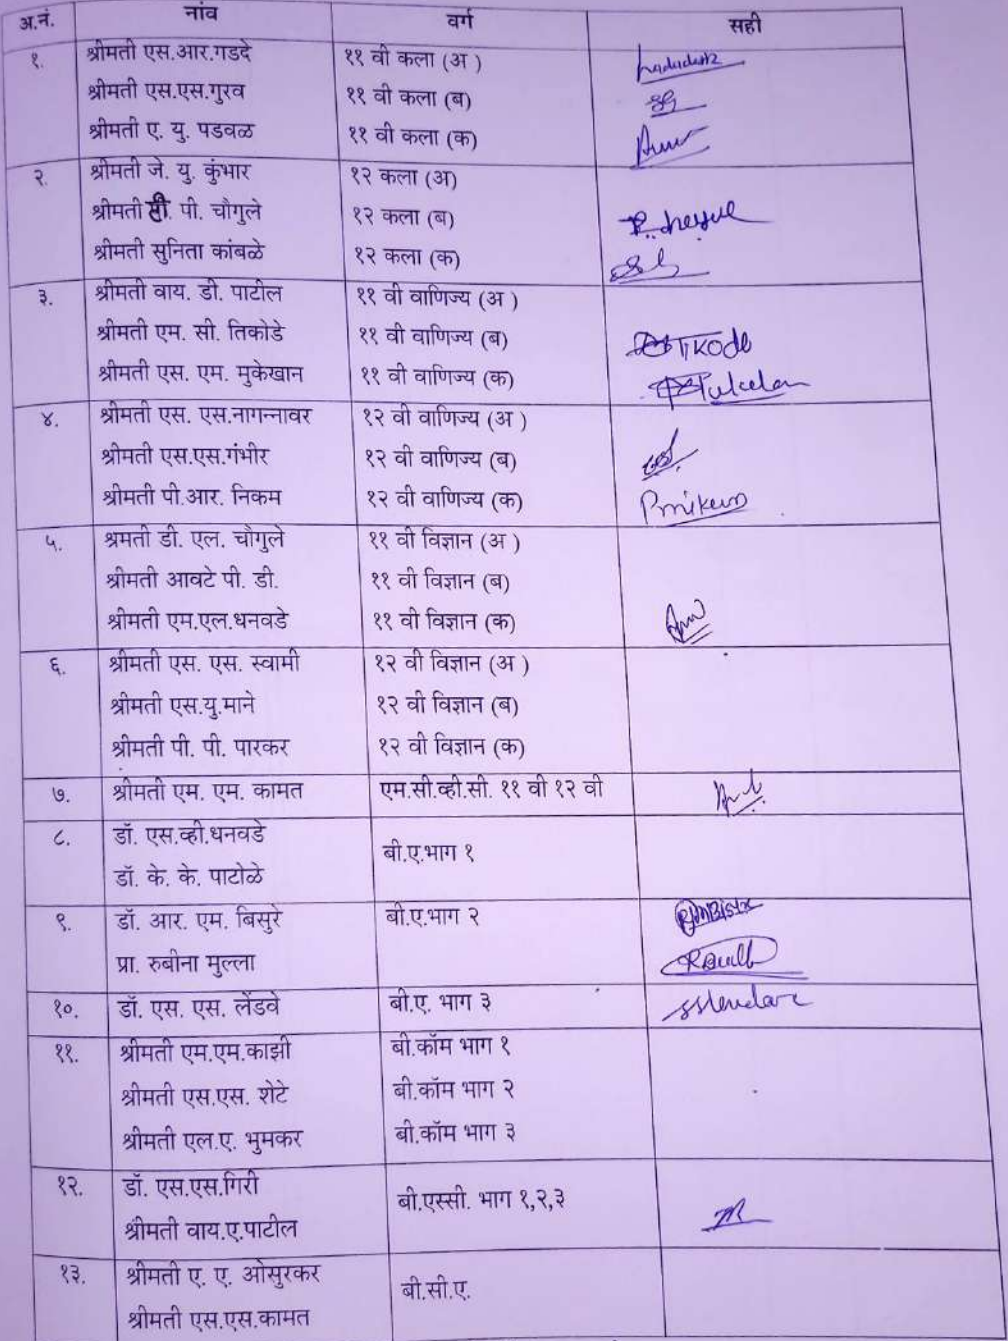 अ.नं. नांव वर्ग सही
१. श्रीमती एस.आर.गडदे ११ वी कला (अ )
श्रीमती एस.एस.गुरव ११ वी कला (ब)
श्रीमती ए. यु. पडवळ ११ वी कला (क)
२. श्रीमती जे. यु. कुंभार १२ कला (अ)
श्रीमती टी. पी. चौगुले १२ कला (ब)
श्रीमती सुनिता कांबळे १२ कला (क)
३. श्रीमती वाय. डी. पाटील ११ वी वाणिज्य (अ )
श्रीमती एम. सी. तिकोडे ११ वी वाणिज्य (ब) TIKODE
श्रीमती एस. एम. मुकेखान ११ वी वाणिज्य (क)
४. श्रीमती एस. एस.नागन्नावर १२ वी वाणिज्य (अ )
श्रीमती एस.एस.गंभीर १२ वी वाणिज्य (ब)
श्रीमती पी.आर. निकम १२ वी वाणिज्य (क)
५. श्रमती डी. एल. चौगुले ११ वी विज्ञान (अ )
श्रीमती आवटे पी. डी. ११ वी विज्ञान (ब)
श्रीमती एम.एल.धनवडे ११ वी विज्ञान (क)
६. श्रीमती एस. एस. स्वामी १२ वी विज्ञान (अ )
श्रीमती एस.यु.माने १२ वी विज्ञान (ब)
श्रीमती पी. पी. पारकर १२ वी विज्ञान (क)
७. श्रीमती एम. एम. कामत एम.सी.व्ही.सी. ११ वी १२ वी
८. डॉ. एस.व्ही.धनवडे
बी.ए.भाग १
डॉ. के. के. पाटोळे
९. डॉ. आर. एम. बिसुरे बी.ए.भाग २
प्रा. रुबीना मुल्ला
१०. डॉ. एस. एस. लेंडवे बी.ए. भाग ३
११. श्रीमती एम.एम.काझी बी.कॉम भाग १
श्रीमती एस.एस. शेटे बी.कॉम भाग २
श्रीमती एल.ए. भुमकर बी.कॉम भाग ३
१२. डॉ. एस.एस.गिरी
बी.एस्सी. भाग १,२,३
श्रीमती वाय.ए.पाटील
१३. श्रीमती ए. ए. ओसुरकर
बी.सी.ए.
श्रीमती एस.एस.कामत